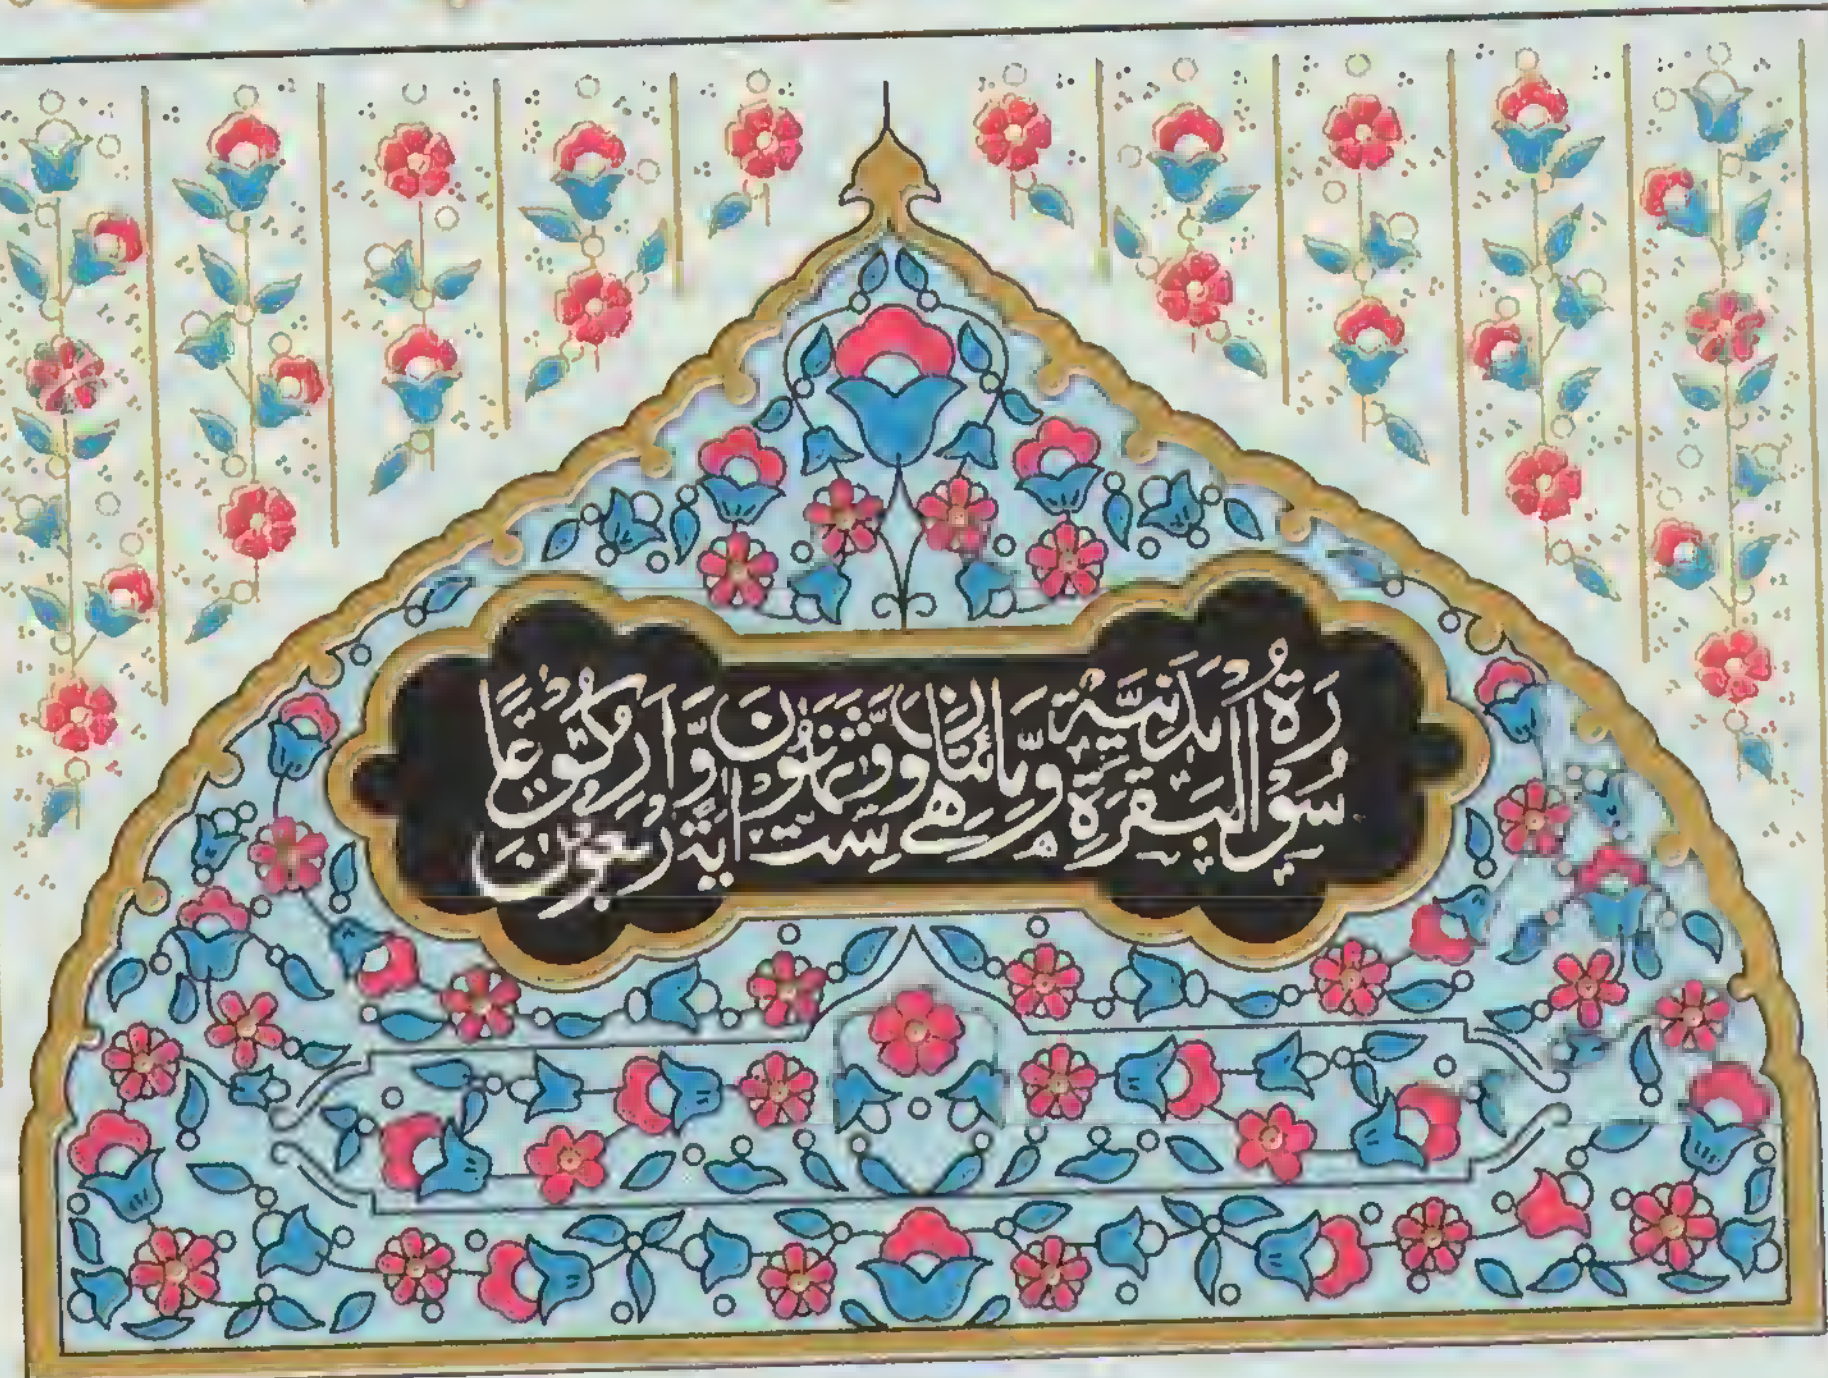 سُوْرَةُ الْبَقَرَةِ مَدَنِيَّةٌ وَّهِيَ مِائَتَانِ وَسِتٌّ وَّثَمَانُوْنَ اٰيَةً وَّاَرْبَعُوْنَ رُكُوْعًا